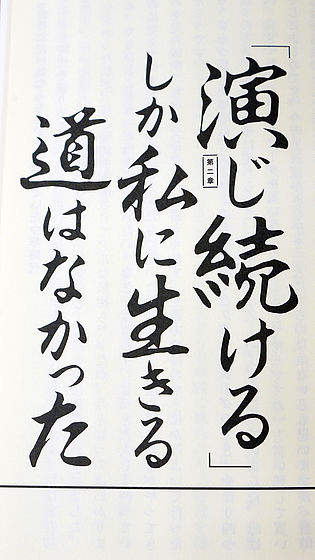 「演じ続ける」
第二章
しか私に生きる
道はなかった